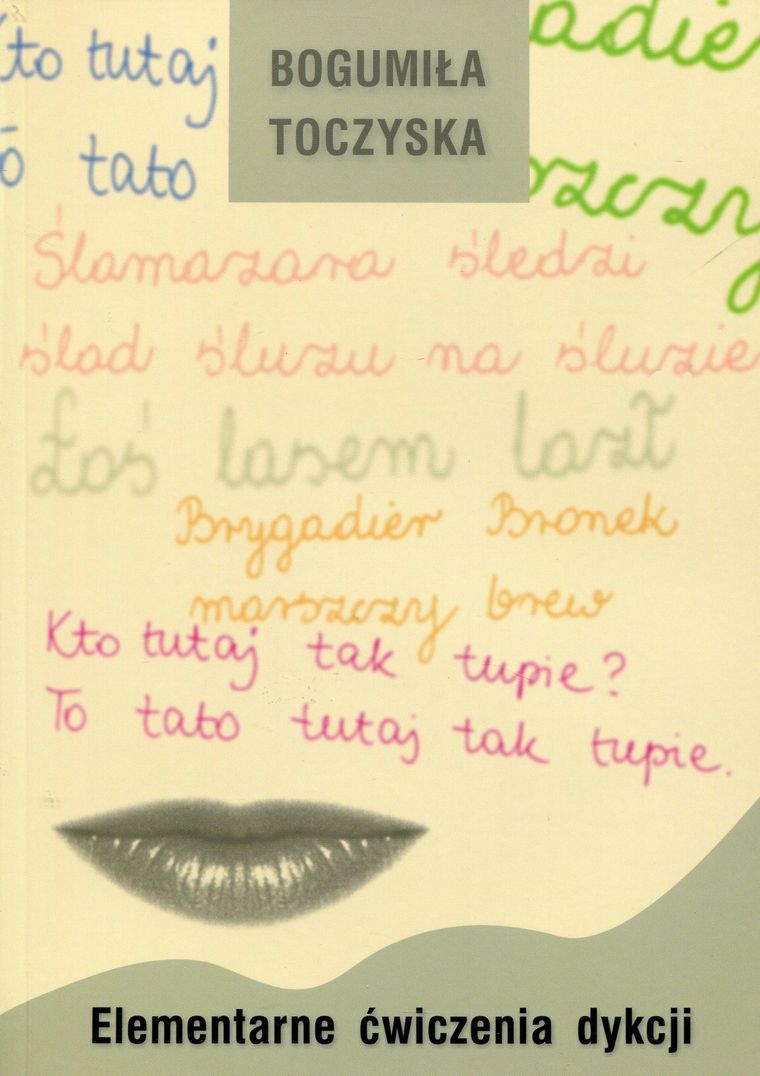 Kto tutaj
tato
BOGUMIŁA
TOCZYSKA
adie
szczy
Ślamazara śledzi
ślad śluzu na śluzie
Łoś lasem lazł
Brygadier Bronek
marszczy brew
Kto tutaj tak tupie?
To tato tutaj tak tupie.
Elementarne ćwiczenia dykcji